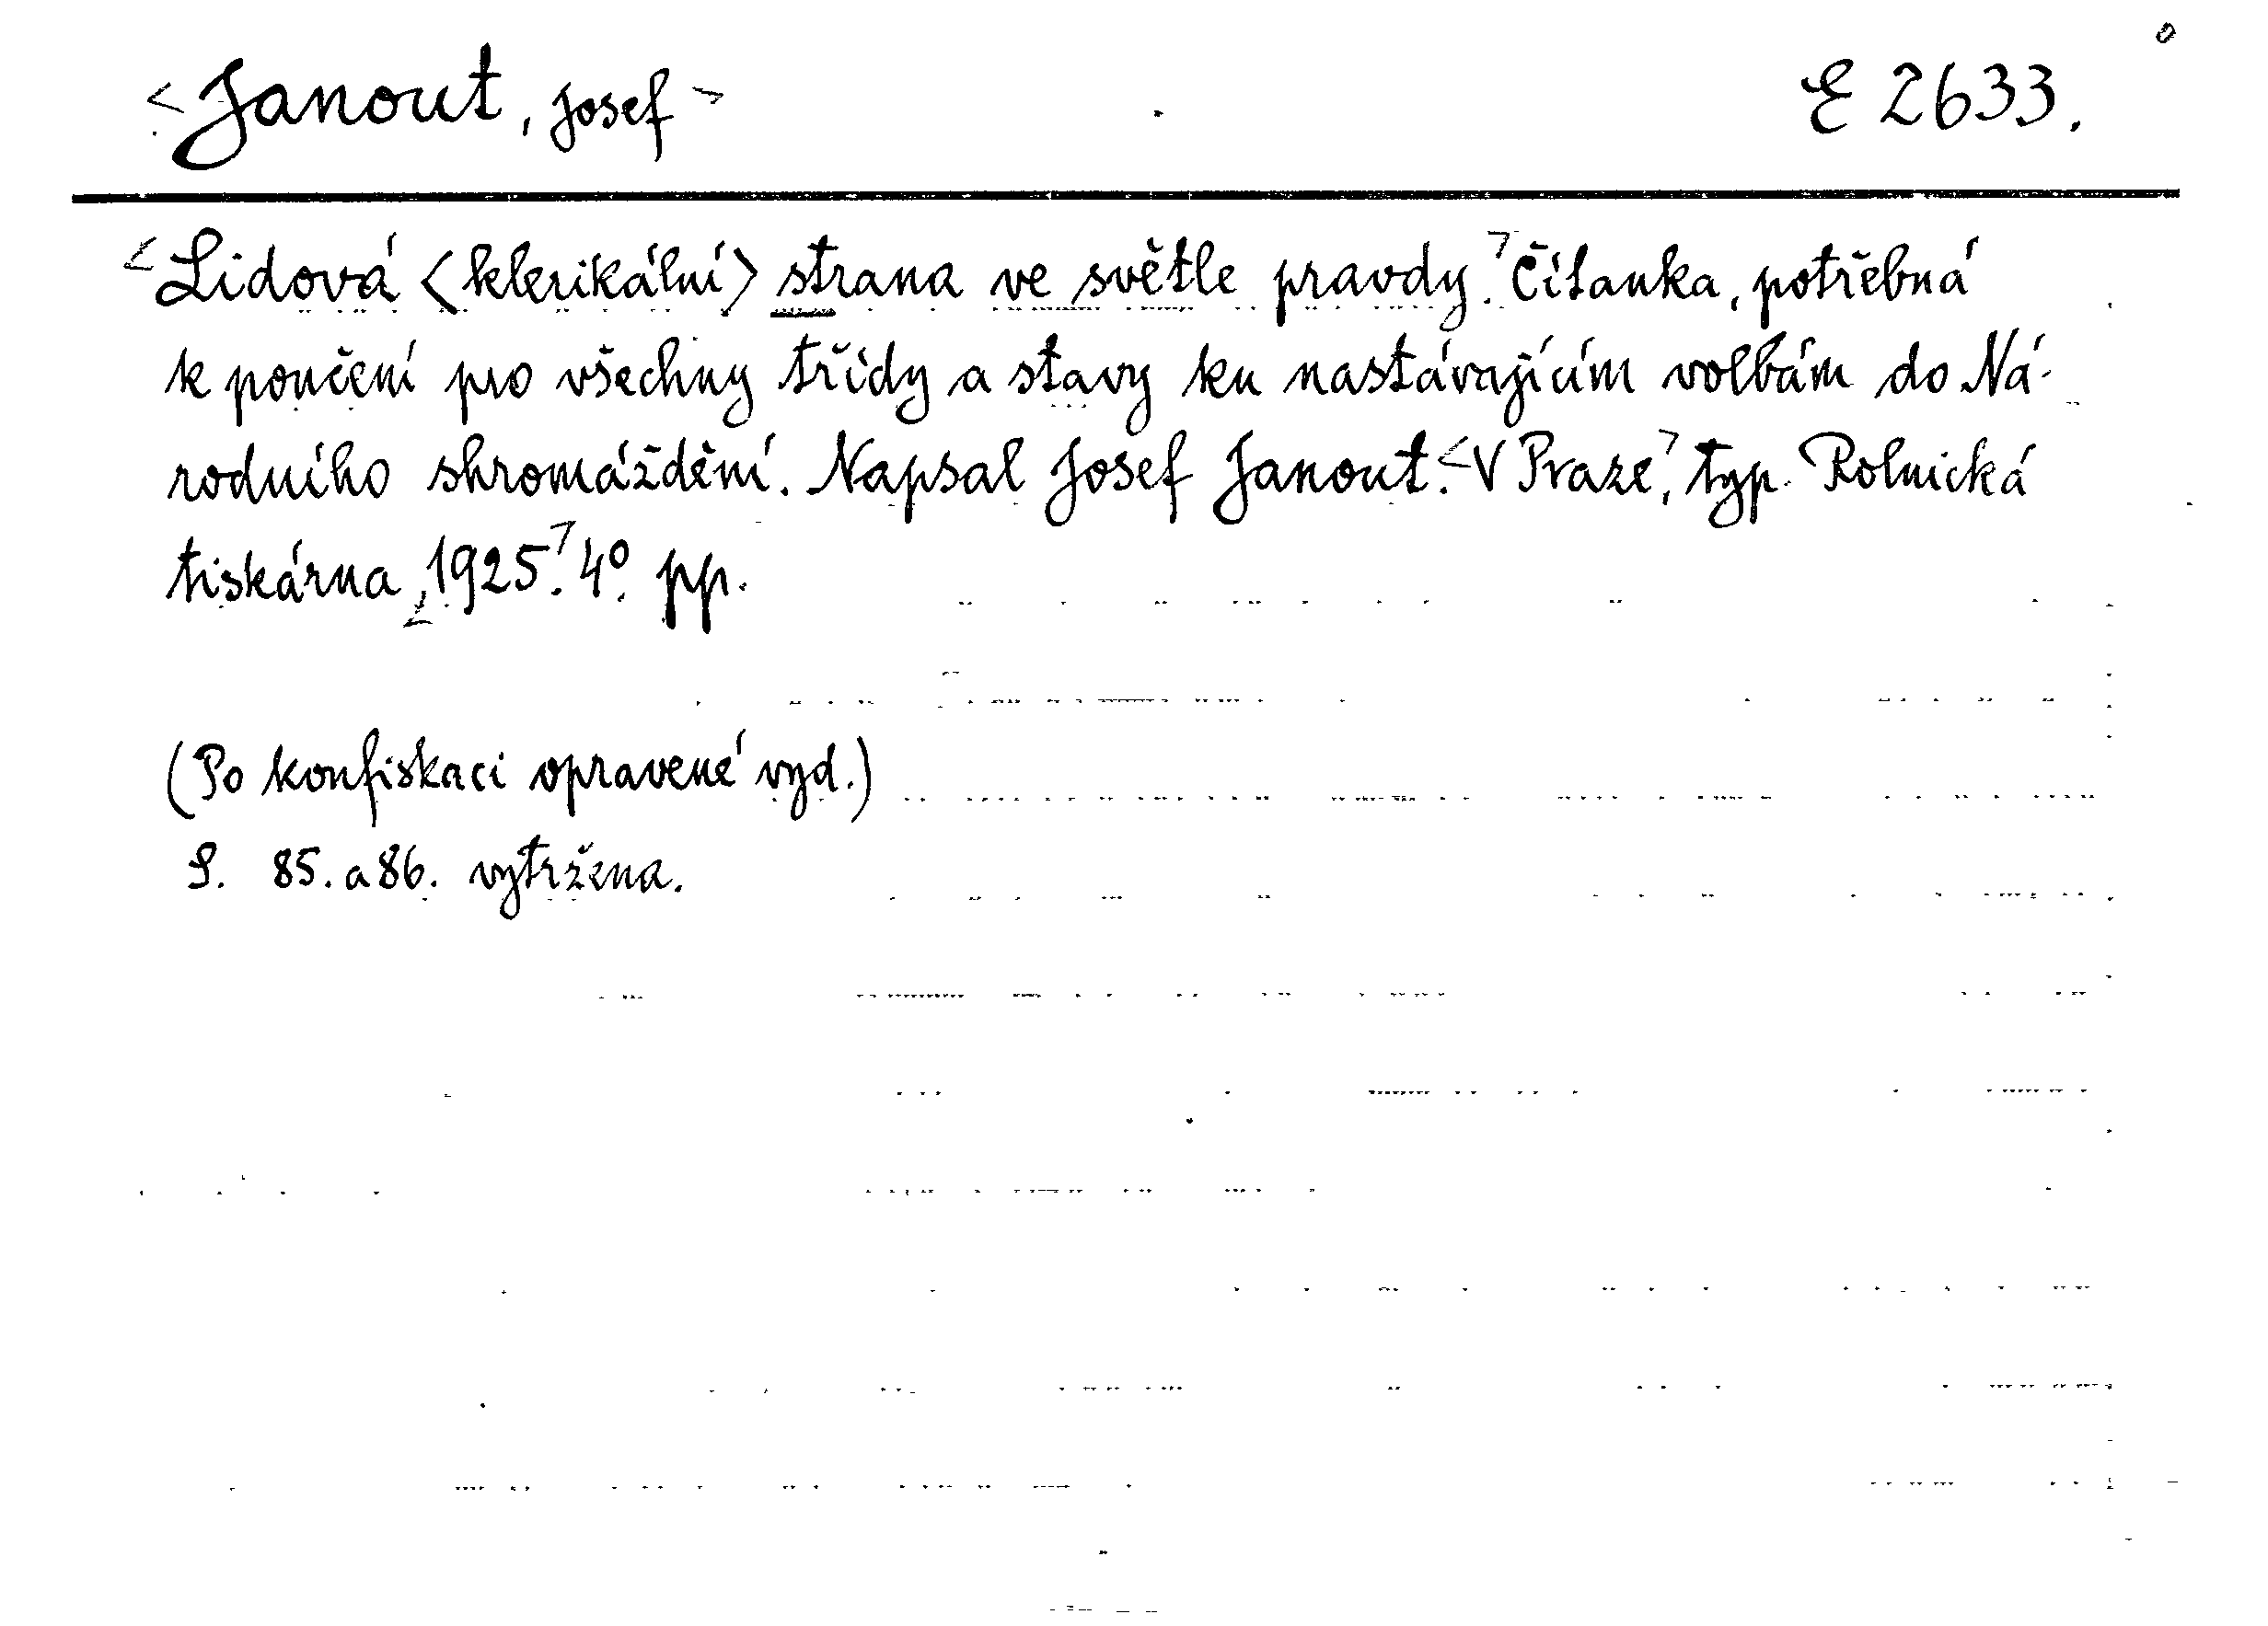 <Janout, Josef> E 2633.
<Lidová <klerikální> strana ve světle pravdy.> Čítanka, potřebná
k poučení pro všechny třídy a stavy ku nastávajícím volbám do Ná-
rodního shromáždění. Napsal Josef Janout. <V Praze,> typ. Rolnická
tiskárna, <1925.> 4º. pp.
(Po konfiskaci opravené vyd.)
S. 85. a 86. vytržena.